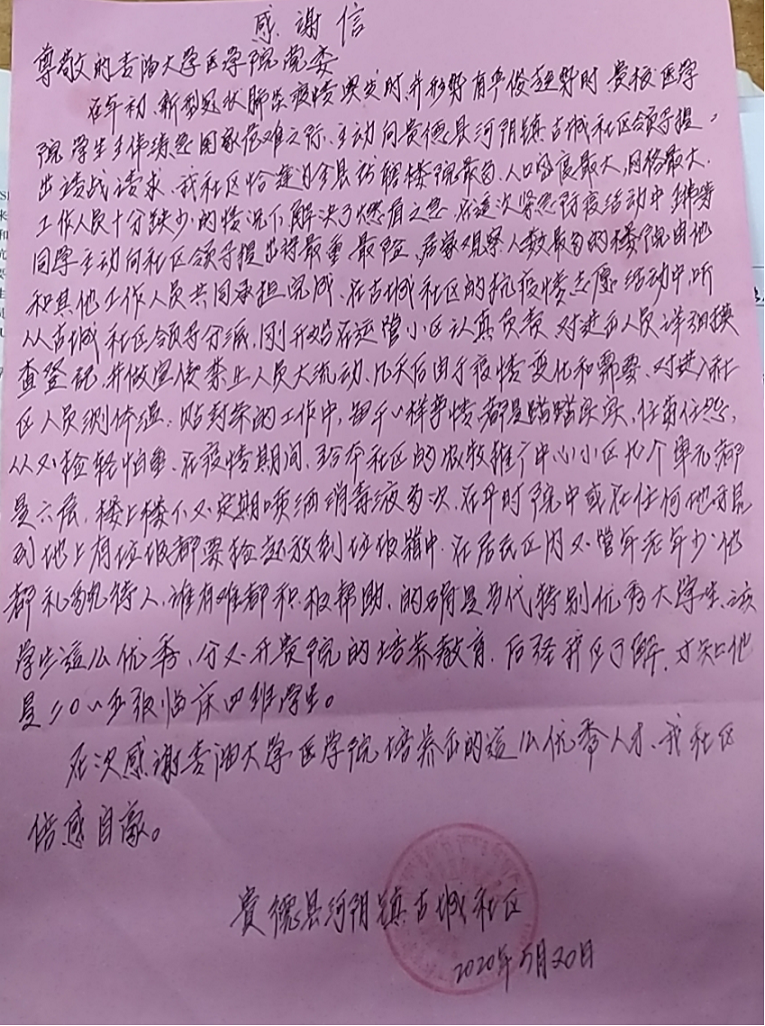 感谢信
尊敬的青海大学医学院党委
在年初，新型冠状肺炎疫情突发时，并形势有严俊趋势时，贵校医学
院学生王伟 国家危难之际，主动向贵德县河阴镇古城社区领导提
出请战请求，我社区恰是 全县所辖楼院最多，人口密度最大，网格最大，
工作人员十分缺少的情况下，解决了燃眉之急，在这次紧急防疫活动中
同学主动向社区领导提出将最重，最险，居家观察人数最多的楼院由他
和其他工作人员共同承担完成，在古城社区的抗疫情志愿活动中，听
从古城社区领导分派，刚开始在运管小区认真负责，对进出人员详细摸
查登记，并做宣传禁止人员大流动，几天后由于疫情变化和需要，对进入社
区人员测体温，贴封条的工作中，每干一样事情，都是踏踏实实，任劳任怨，
从不捡轻怕重，在疫情期间，给本社区的农牧推广中心小区 个单元都
是六层，楼上楼下不定期喷洒消毒液多次，在平时院中或在任何地方见
到地上有垃圾都要捡起放到垃圾箱中，在居民区内不管年老年少他
都礼貌待人，谁有难都积极帮助，的确是当代特别优秀大学生，该
学生这么优秀，分不开贵院的培养教育，后经我区了解，才知他
是二〇一五级临床四班学生。
在次感谢青海大学医学院培养出的这么优秀人才，我社区
倍感自豪。
贵德县河阴镇古城社区
2020年5月20日